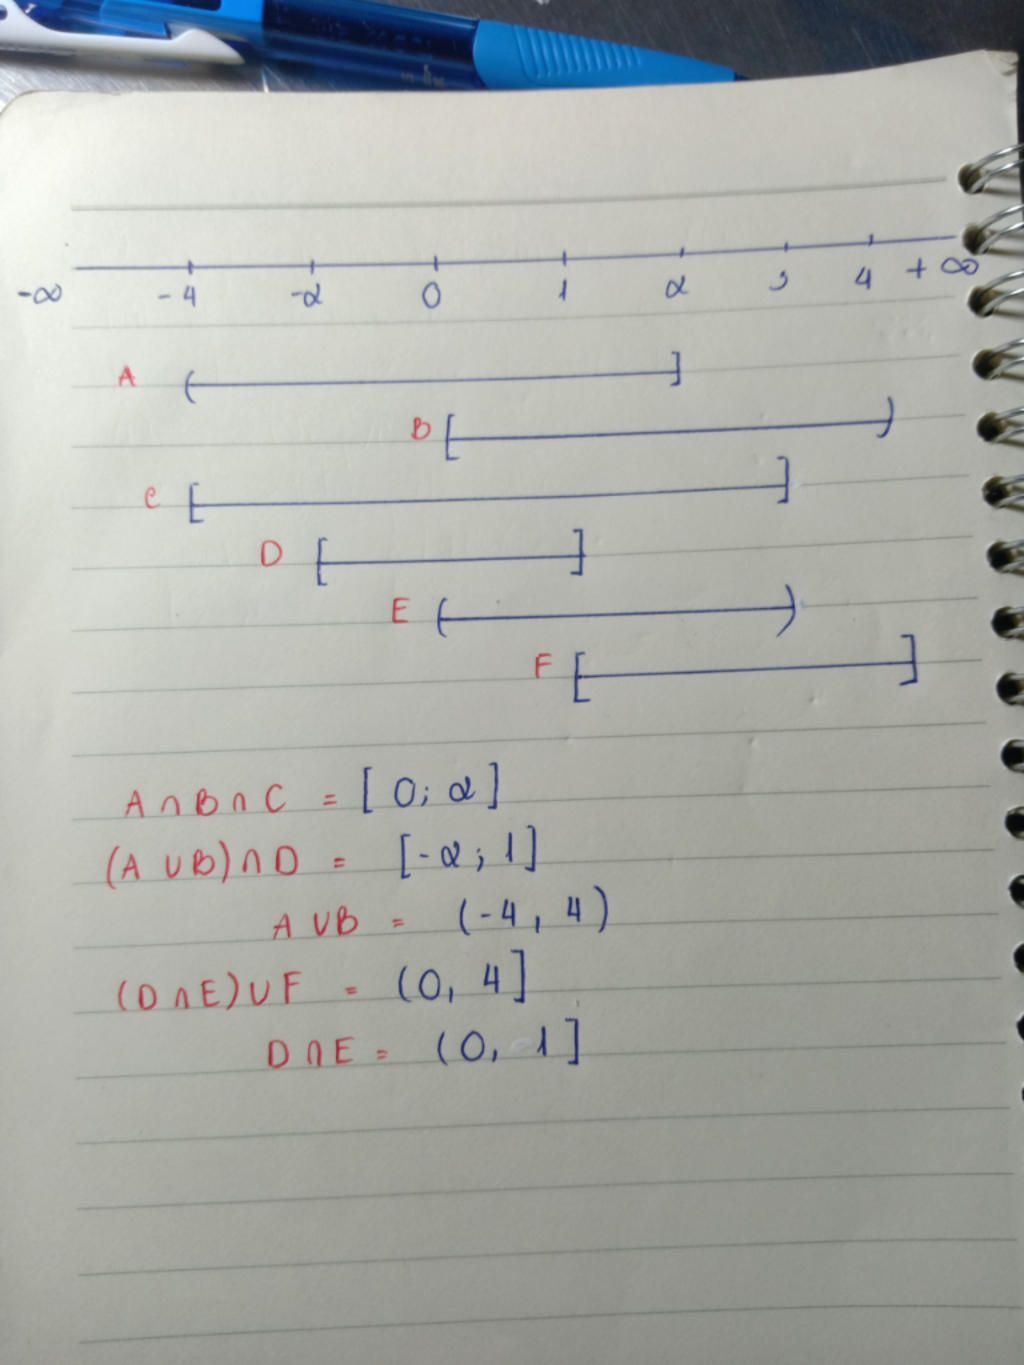 -∞ -4 -2 0 1 2 3 4 +∞
A ( ]
B [ )
C [ ]
D [ ]
E ( )
F [ ]
A ∩ B ∩ C = [ 0; 2 ]
(A ∪ B) ∩ D = [-2 ; 1 ]
A ∪ B = (-4, 4)
(D ∩ E) ∪ F = (0, 4]
D ∩ E = (0, 1 ]